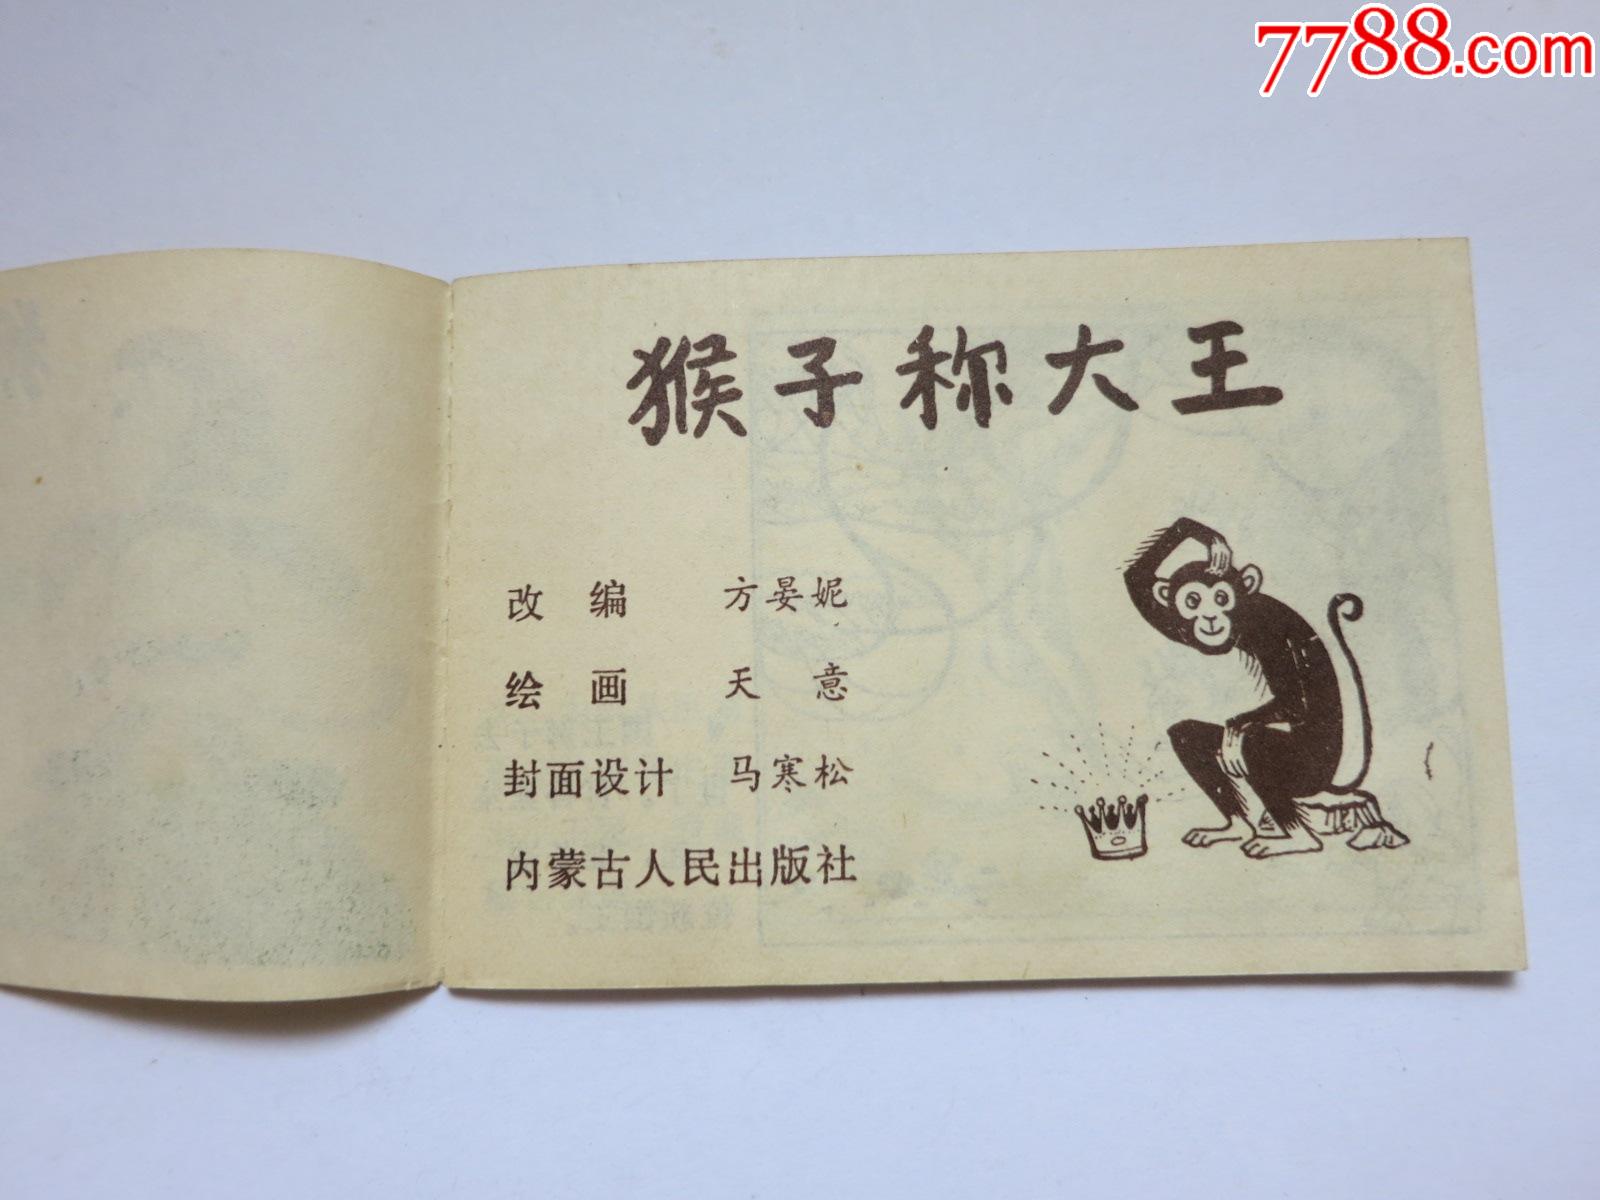 7788.com
猴子称大王
改 编 方晏妮
绘 画 天 意
封面设计 马寒松
内蒙古人民出版社